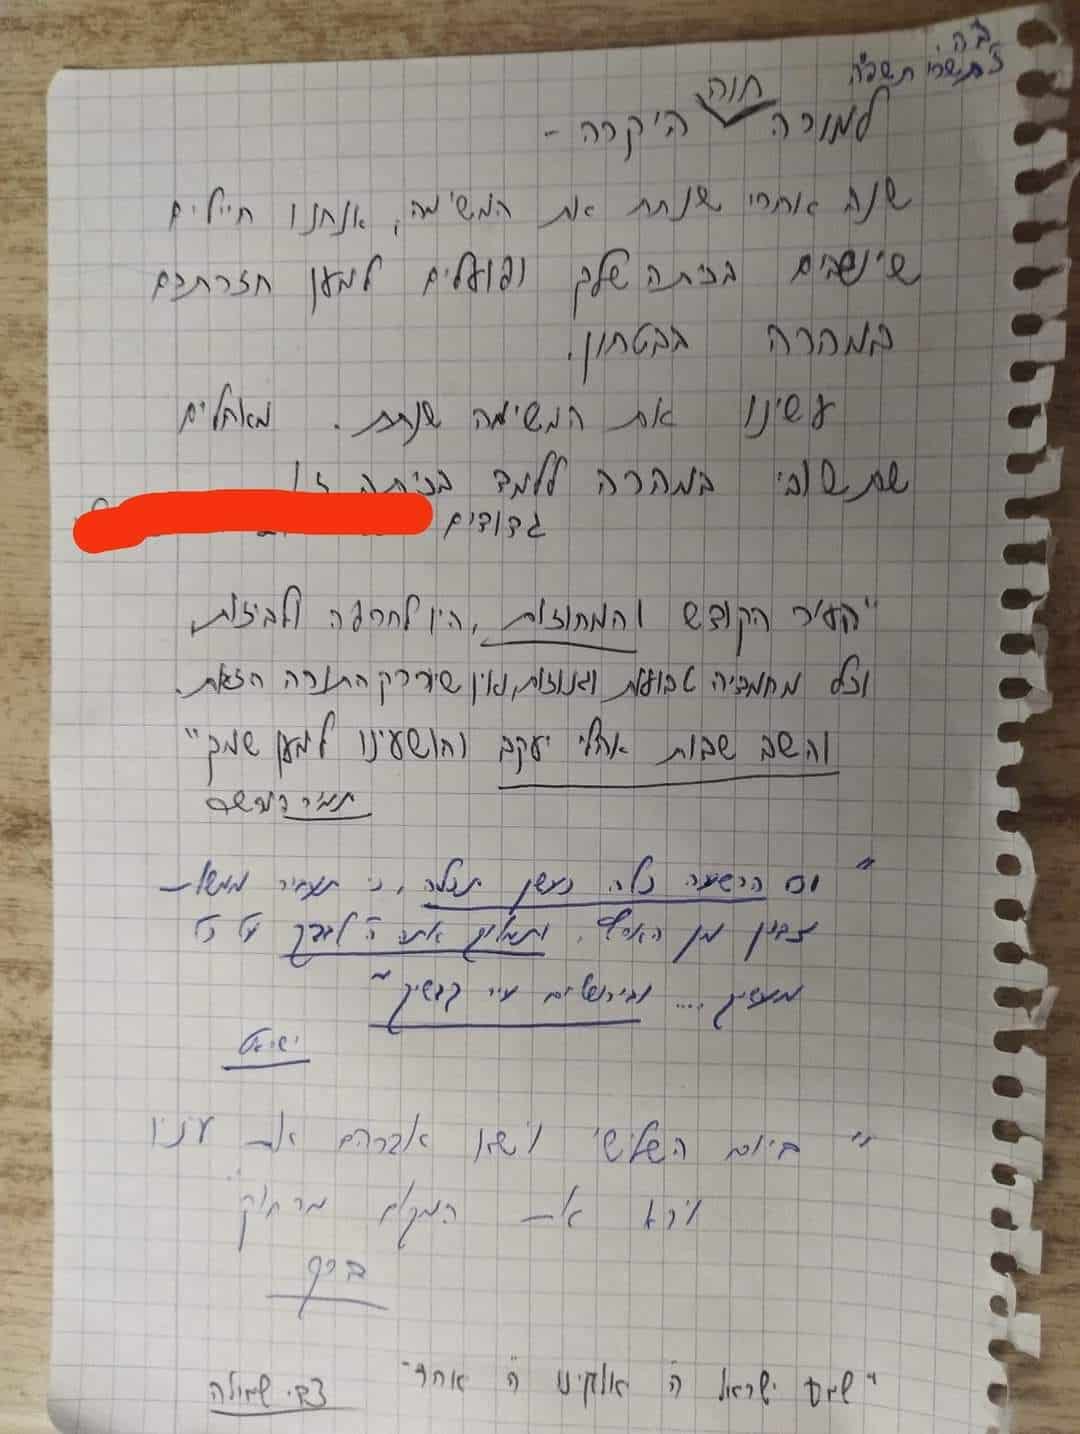 ב"ה
ז' תשרי תשפ"ה
למורה חוה היקרה -
שנה אחרי שנתת את המשימה, אנחנו חיילים
שיושבים בכיתה שלך ופועלים למען חזרתכם
במהרה בבטחון.
עשינו את המשימה שנתת. מאחלים
שתשובי במהרה ללמד בכיתה זו
גדודים
"העיר הקודש והמחוזות, היו לחרפה ולביזות,
וכל מחמדיה טבועות וגנוזות, ואין שיור רק התורה הזאת.
והשב שבות אהלי יעקב והושענו למען שמך"
"וכ הרשעה כלה כעשן תכלה, כי תעביר ממשלת
זדון מן הארץ. ותמלוך אתה ה' לבדך על כל
מעשיך .... ובירושלים עיר קדשך"
ישראל
"ביום השלישי וישא אברהם את עיניו
וירא את המקום מרחוק"
"שמע ישראל ה' אלוקינו ה' אחד"
צבי